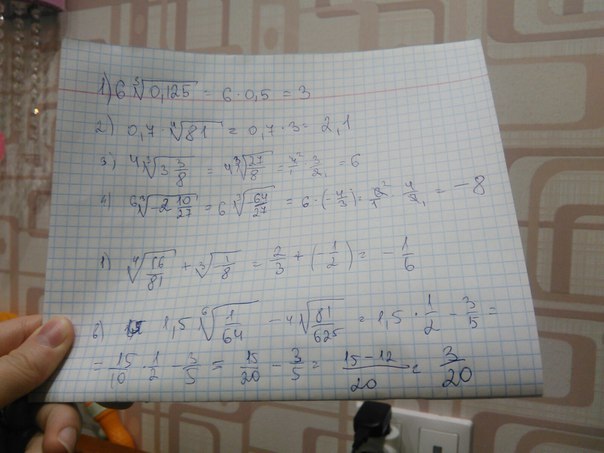 1) 6 ∛0,125 = 6 · 0,5 = 3
2) 0,7 · ⁴√81 = 0,7 · 3 = 2,1
3) 4 ∛(3 3/8) = 4 ∛(27/8) = 4²/1 · 3/2₁ = 6
4) 6 ∛(-2 10/27) = 6 ∛(64/27) = 6 · (-4/3) = 6²/1 · 4/3₁ = -8
1) ⁴√(16/81) + ∛(1/8) = 2/3 + (-1/2) = -1/6
6) 1,5 ⁶√(1/64) - ⁴√(81/625) = 1,5 · 1/2 - 3/5 =
= 15/10 · 1/2 - 3/5 = 15/20 - 3/5 = (15-12)/20 = 3/20